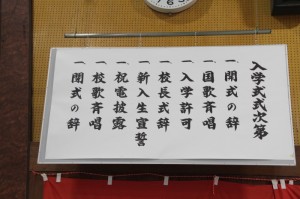 入学式式次第
一 開式の辞
一 国歌斉唱
一 入学許可
一 校長式辞
一 新入生宣誓
一 祝電披露
一 校歌斉唱
一 閉式の辞